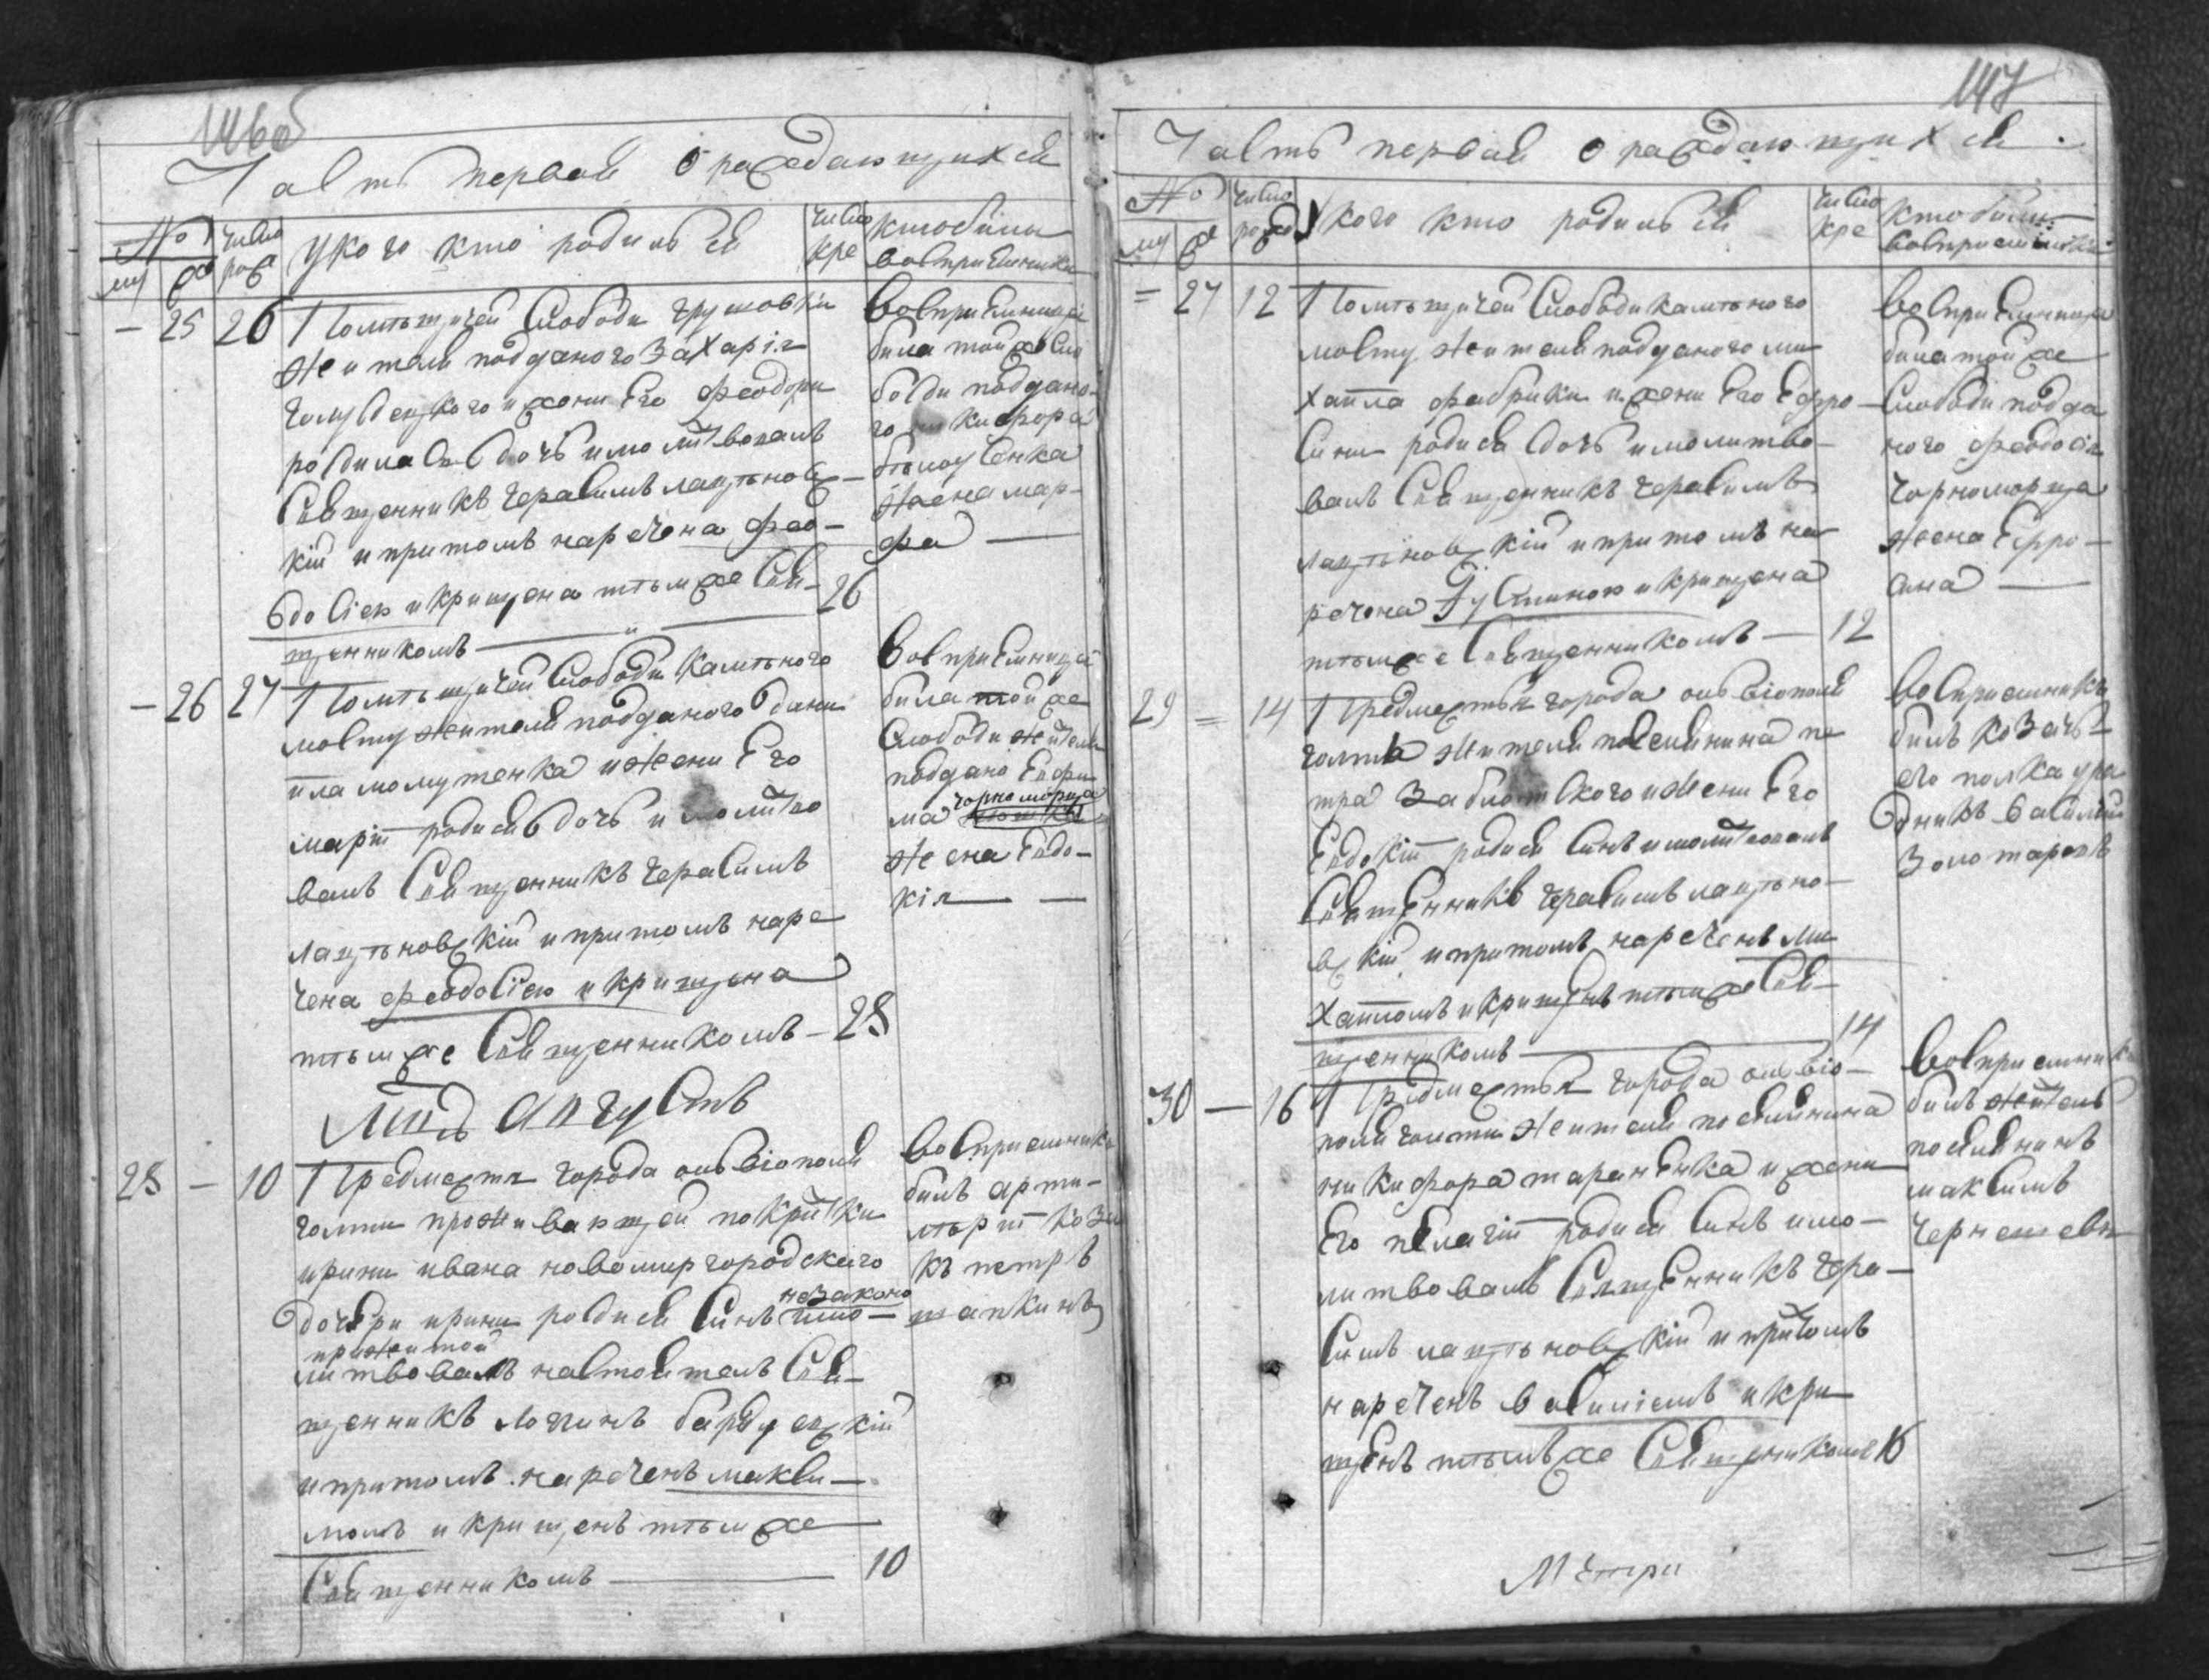 146 об
Часть первая о раждающихся
№ число рож у кого кто родился число кре кто были
му же восприемники
– 25 26 Помѣщичей слободи грушовки
жителя подданого Захарія
родилась дочь и молитвовалъ
священникъ герасимъ лащѣнов-
кій и притомъ наречена фео-
досіею и крищена тѣмже свя- 26
щенникомъ
восприемницей
била тойже сло
боди поддано-
го никифора
жена мар-
фа
– 26 27 Помѣщичей слободи Камѣного
мосту жителя подданого дани
ила момутенка и жени Его
маріи родися дочь и молитво
валъ священникъ герасимъ
лащѣновскій и притомъ наре
чена феодосіею и крищена
тѣмже священникомъ – 28
восприемницей
била тойже
слободи жителя
поддано Ефи
ма чорноморца
жена Евдо-
кія
Мцъ Августъ
28 – 10 Предместя города ольвіополя
голти проживающей покритки
ирини ивана новомиргородскаго
дочери ирини родися синъ незаконо и мо-
прижитой
литвовалъ настоятель свя-
щенникъ логинъ
и притомъ нареченъ макси-
момъ и крищенъ тѣмже
священникомъ 10
восприемникъ
билъ арти-
лѣріи коза
къ петръ
шапкинъ
147
Часть первая о раждающихся
№ число рожд у кого кто родился число кре кто были
му же восприемники
= 27 12 Помѣщичей слободи камѣного
мосту жителя подданого ми
хаила фабрики и жени Его Ефро-
сини родися дочь и молитво-
валъ священникъ герасимъ
лащѣновскій и притомъ на
речена Іустиною и крищена
тѣмже священникомъ – 12
восприемница
била тойже
слободи подда
ного феодосія
чорноморца
жена Ефро-
сина
29 = 14 Предместья города ольвіополя
голти жителя поселянина пе
тра Заблотского и жени Его
Евдокіи родися синъ и молитвовалъ
священникъ герасимъ лащѣно-
вскій и притомъ нареченъ ми
хаиломъ и крищенъ тѣмже свя-
щенникомъ 14
восприемникъ
билъ козачь-
его полка уря
дникъ василий
Золотаревъ
30 – 16 Предместья города ольвіо-
поля голти жителя поселянина
никифора таранѣнка и жени
Его пелагіи родися синъ и мо-
литвовалъ священникъ гера-
симъ лащѣновскій и притомъ
нареченъ василіемъ и кри
щенъ тѣмъже священикомъ 16
восприемникъ
билъ житель
поселянинъ
максимъ